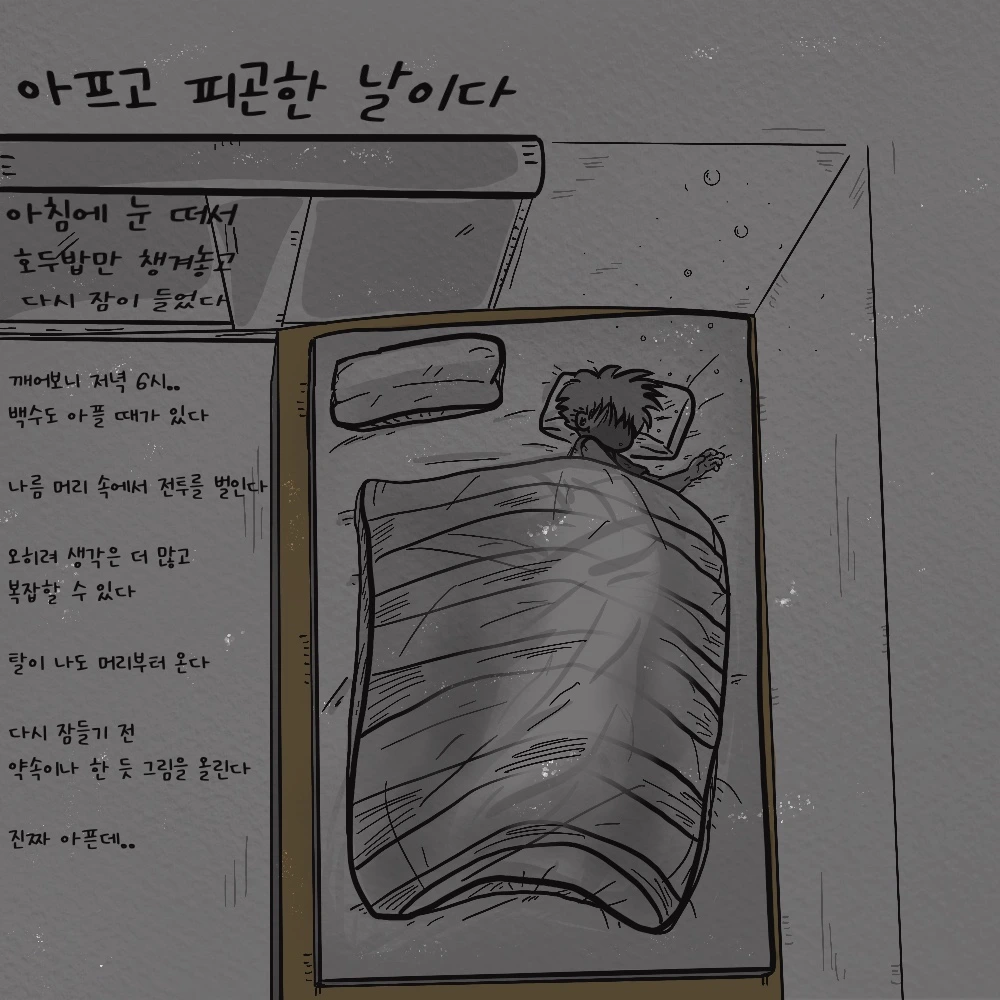 아프고 피곤한 날이다
아침에 눈 떠서
호두밥만 챙겨놓고
다시 잠이 들었다
깨어보니 저녁 6시..
백수도 아플 때가 있다
나름 머리 속에서 전투를 벌인다
오히려 생각은 더 많고
복잡할 수 있다
탈이 나도 머리부터 온다
다시 잠들기 전
약속이나 한 듯 그림을 올린다
진짜 아픈데..